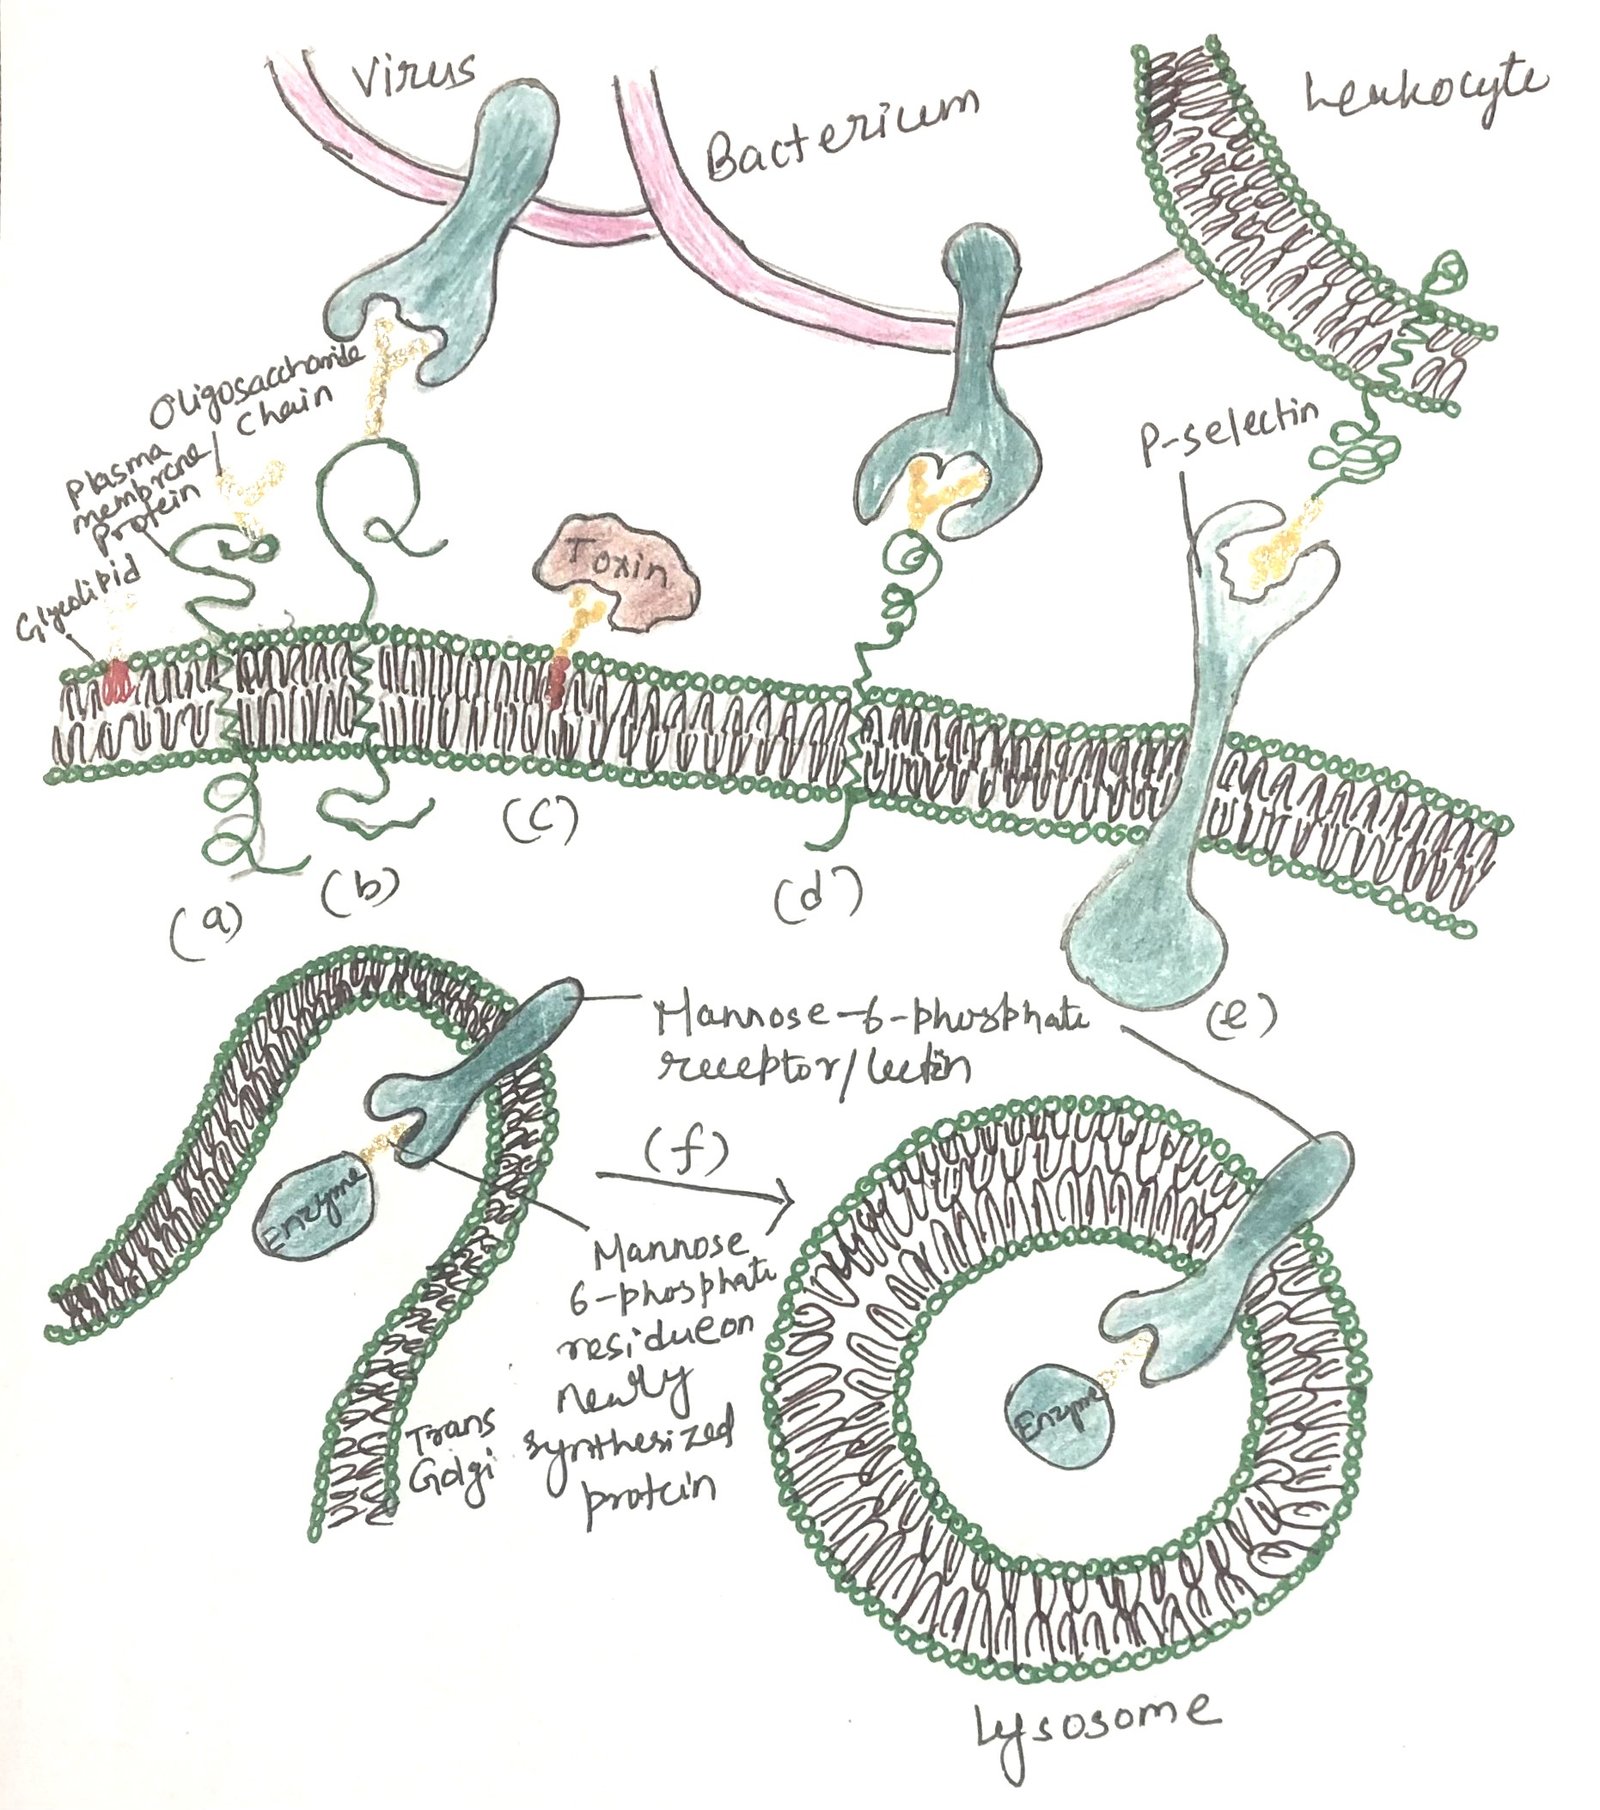 Virus
Bacterium
Leukocyte
Oligosaccharide
chain
Plasma
membrane
Protein
Glycolipid
Toxin
P-selectin
(a)
(b)
(c)
(d)
(e)
Mannose-6-phosphate
receptor/lectin
(f)
Enzyme
Mannose
6-phosphate
residue on
newly
synthesized
protein
Trans
Golgi
Enzyme
Lysosome